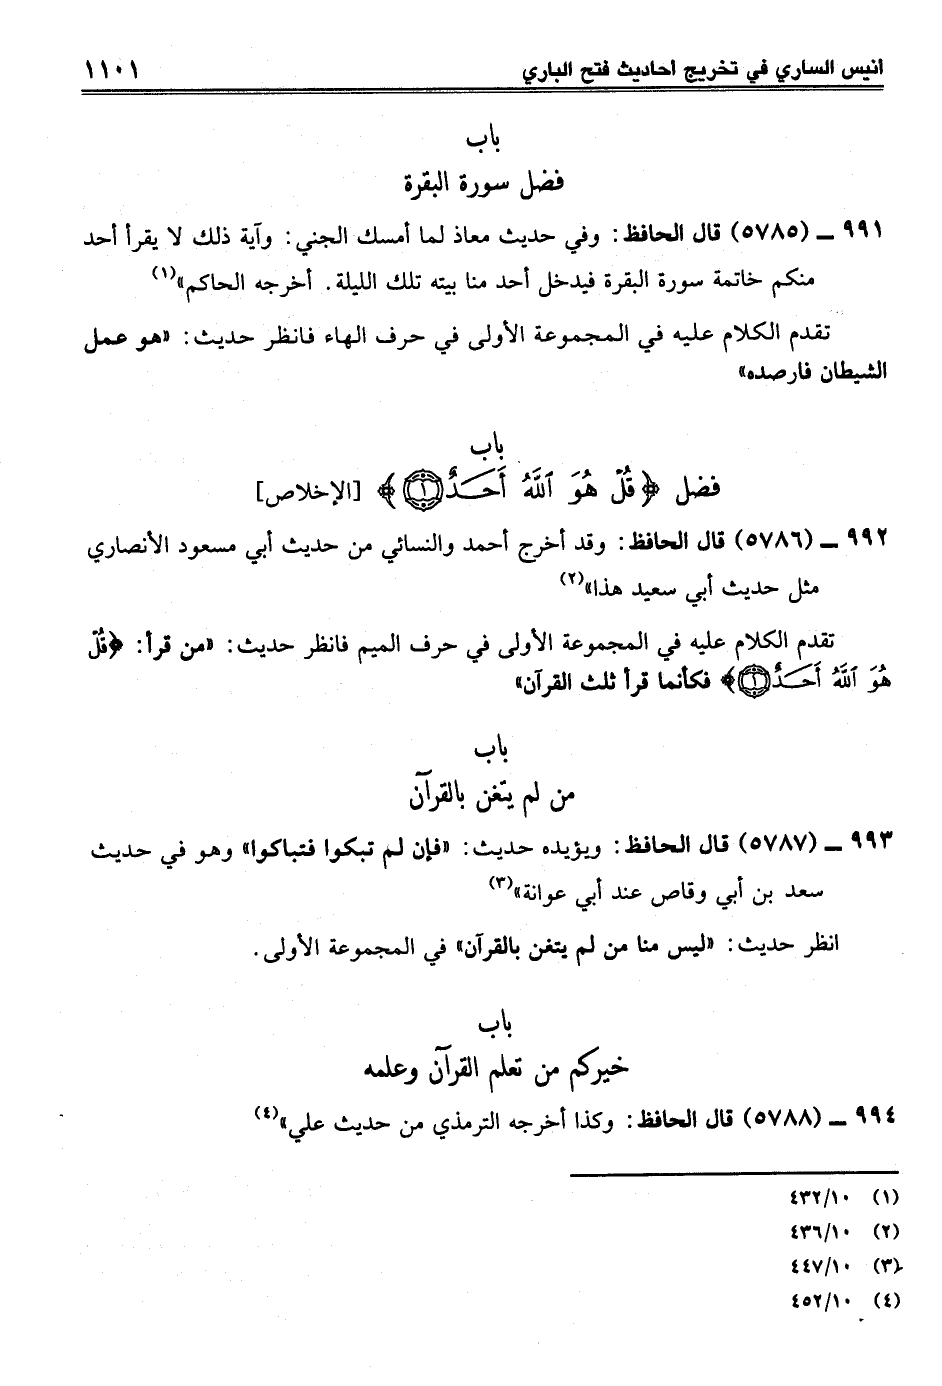 أنيس الساري في تخريج أحاديث فتح الباري ١١٠١
باب
فضل سورة البقرة
٩٩١ ـ (٥٧٨٥) قال الحافظ: وفي حديث معاذ لما أمسك الجني: وآية ذلك لا يقرأ أحد
منكم خاتمة سورة البقرة فيدخل أحد منا بيته تلك الليلة. أخرجه الحاكم»(١)
تقدم الكلام عليه في المجموعة الأولى في حرف الهاء فانظر حديث: «هو عمل
الشيطان فارصده»
باب
فضل ﴿قُلْ هُوَ ٱللَّهُ أَحَـدٌ ۝١﴾ [الإخلاص]
٩٩٢ ـ (٥٧٨٦) قال الحافظ: وقد أخرج أحمد والنسائي من حديث أبي مسعود الأنصاري
مثل حديث أبي سعيد هذا»(٢)
تقدم الكلام عليه في المجموعة الأولى في حرف الميم فانظر حديث: «من قرأ: ﴿قُلْ
هُوَ ٱللَّهُ أَحَـدٌ ۝١﴾ فكأنما قرأ ثلث القرآن»
باب
من لم يتغن بالقرآن
٩٩٣ ـ (٥٧٨٧) قال الحافظ: ويؤيده حديث: «فإن لم تبكوا فتباكوا» وهو في حديث
سعد بن أبي وقاص عند أبي عوانة»(٣)
انظر حديث: «ليس منا من لم يتغن بالقرآن» في المجموعة الأولى.
باب
خيركم من تعلم القرآن وعلمه
٩٩٤ ـ (٥٧٨٨) قال الحافظ: وكذا أخرجه الترمذي من حديث علي»(٤)
(١) ٤٣٢/١٠
(٢) ٤٣٦/١٠
(٣) ٤٤٧/١٠
(٤) ٤٥٢/١٠